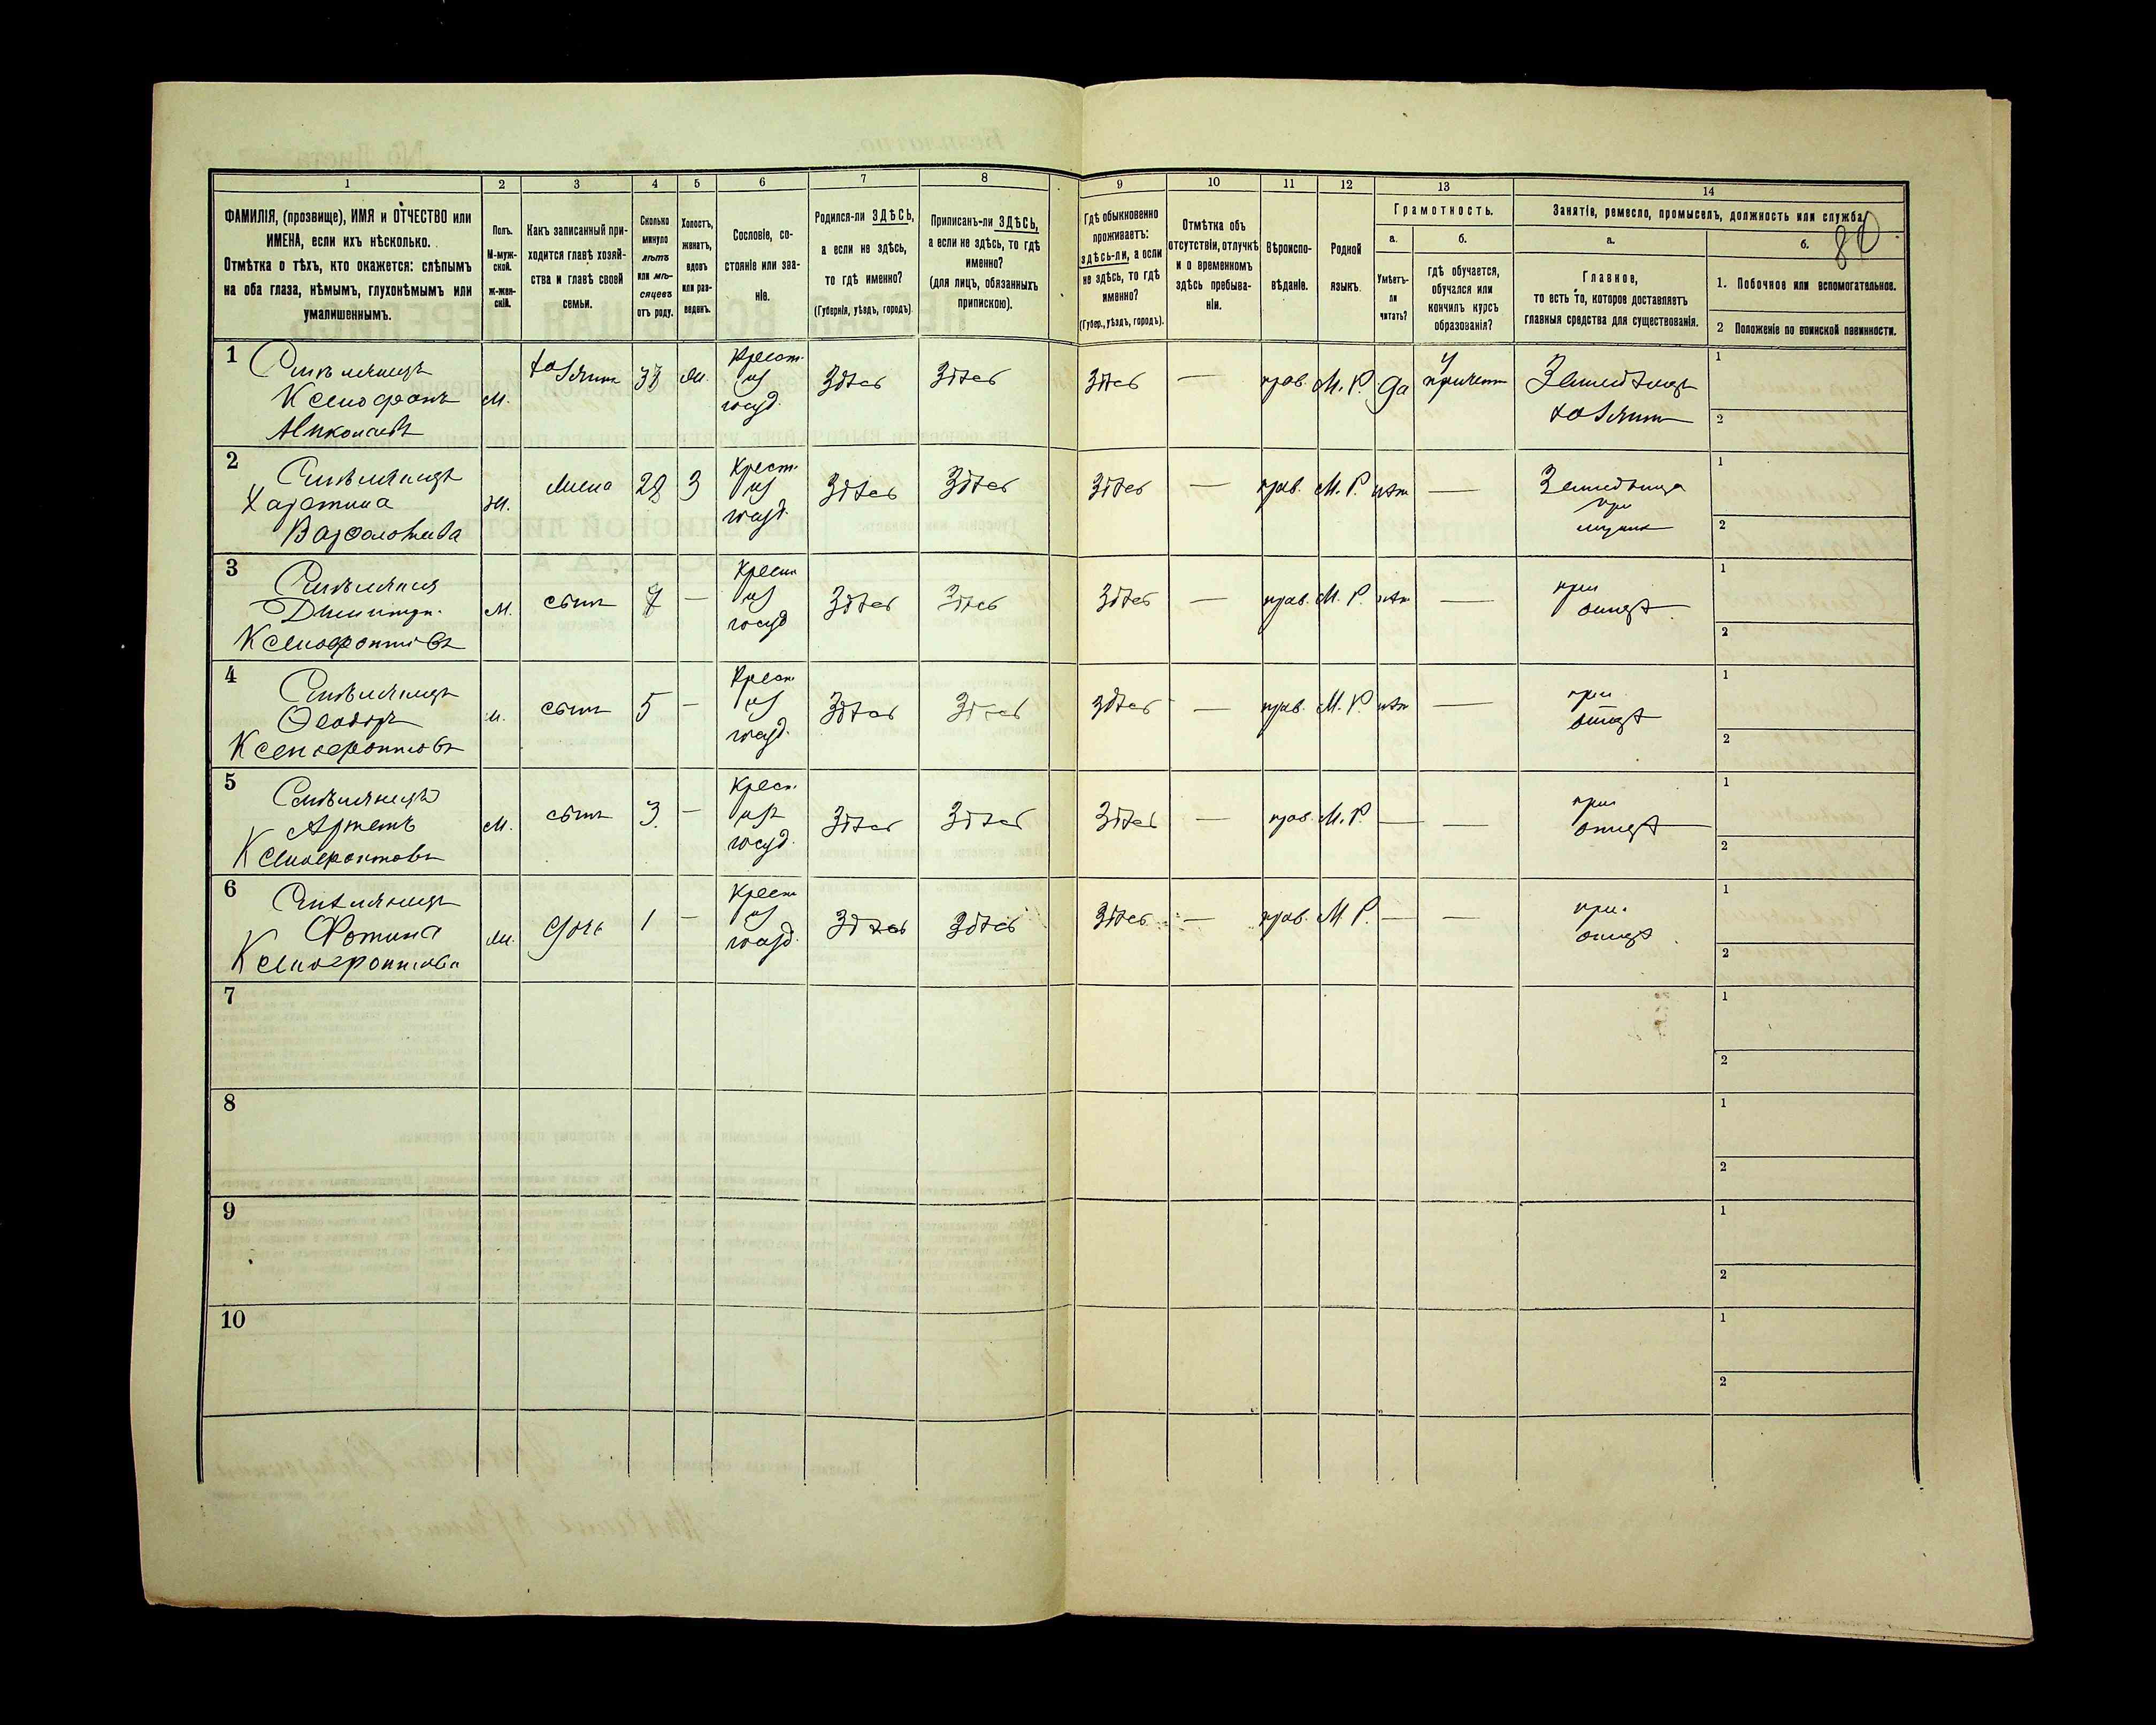 1 2 3 4 5 6 7 8 9 10 11 12 13 14
ФАМИЛІЯ, (прозвище), ИМЯ и ОТЧЕСТВО или
ИМЕНА, если ихъ нѣсколько.
Отмѣтка о тѣхъ, кто окажется: слѣпымъ
на оба глаза, нѣмымъ, глухонѣмымъ или
умалишеннымъ.
Полъ.
М-муж-
ской.
ж-жен-
скій.
Какъ записанный при-
ходится главѣ хозяй-
ства и главѣ своей
семьи.
Сколько
минуло
лѣтъ
или мѣ-
сяцевъ
отъ роду.
Холостъ,
женатъ,
вдовъ
или раз-
веденъ.
Сословіе, со-
стояніе или зва-
ніе.
Родился-ли ЗДѢСЬ,
а если не здѣсь,
то гдѣ именно?
(Губернія, уѣздъ, городъ)
Приписанъ-ли ЗДѢСЬ,
а если не здѣсь, то гдѣ
именно?
(для лицъ, обязанныхъ
припискою).
Гдѣ обыкновенно
проживаетъ:
здѣсь-ли, а если
не здѣсь, то гдѣ
именно?
(Губер., уѣздъ, городъ).
Отмѣтка объ
отсутствіи, отлучкѣ
и о временномъ
здѣсь пребыва-
ніи.
Вѣроиспо-
вѣданіе.
Родной
языкъ.
Грамотность.
а.
Умѣетъ-
ли
читать?
б.
гдѣ обучается,
обучался или
кончилъ курсъ
образованія?
Занятіе, ремесло, промыселъ, должность или служба
а.
Главное,
то есть то, которое доставляетъ
главныя средства для существованія.
б.
1. Побочное или вспомогательное.
2 Положеніе по воинской повинности.
1
Ксенофонъ
Николаевъ
М.
хозяинъ
Крест.
из
госуд.
Здѣсь Здѣсь Здѣсь — прав. М. Р. да
Земледѣлецъ
хозяинъ
1
2
2
Харетина
Варфоломѣева
жена 28 З
Крест.
из
госуд.
Здѣсь Здѣсь Здѣсь — прав. М. Р. нѣт —
при
1
2
3
Дмитрій
Ксенофонтовъ
М. сынъ 7 —
Крест
из
госуд
Здѣсь Здѣсь Здѣсь — прав. М. Р. нѣт —
при
отцѣ
1
2
4
Ѳеодоръ
Ксенофонтовъ
М. сынъ 5 —
Крест
из
госуд.
Здѣсь Здѣсь Здѣсь — прав. М. Р. нѣт —
при
отцѣ
1
2
5
Артемъ
Ксенофонтовъ
М. сынъ 3 —
Крест.
изъ
госуд.
Здѣсь Здѣсь Здѣсь — прав. М. Р. — —
при
отцѣ
1
2
6
Фотина
Ксенофонтова
дочь 1 —
Крест
из
госуд.
Здѣсь Здѣсь Здѣсь — прав. М. Р. — —
при
отцѣ
1
2
7
1
2
8
1
2
9
1
2
10
1
2